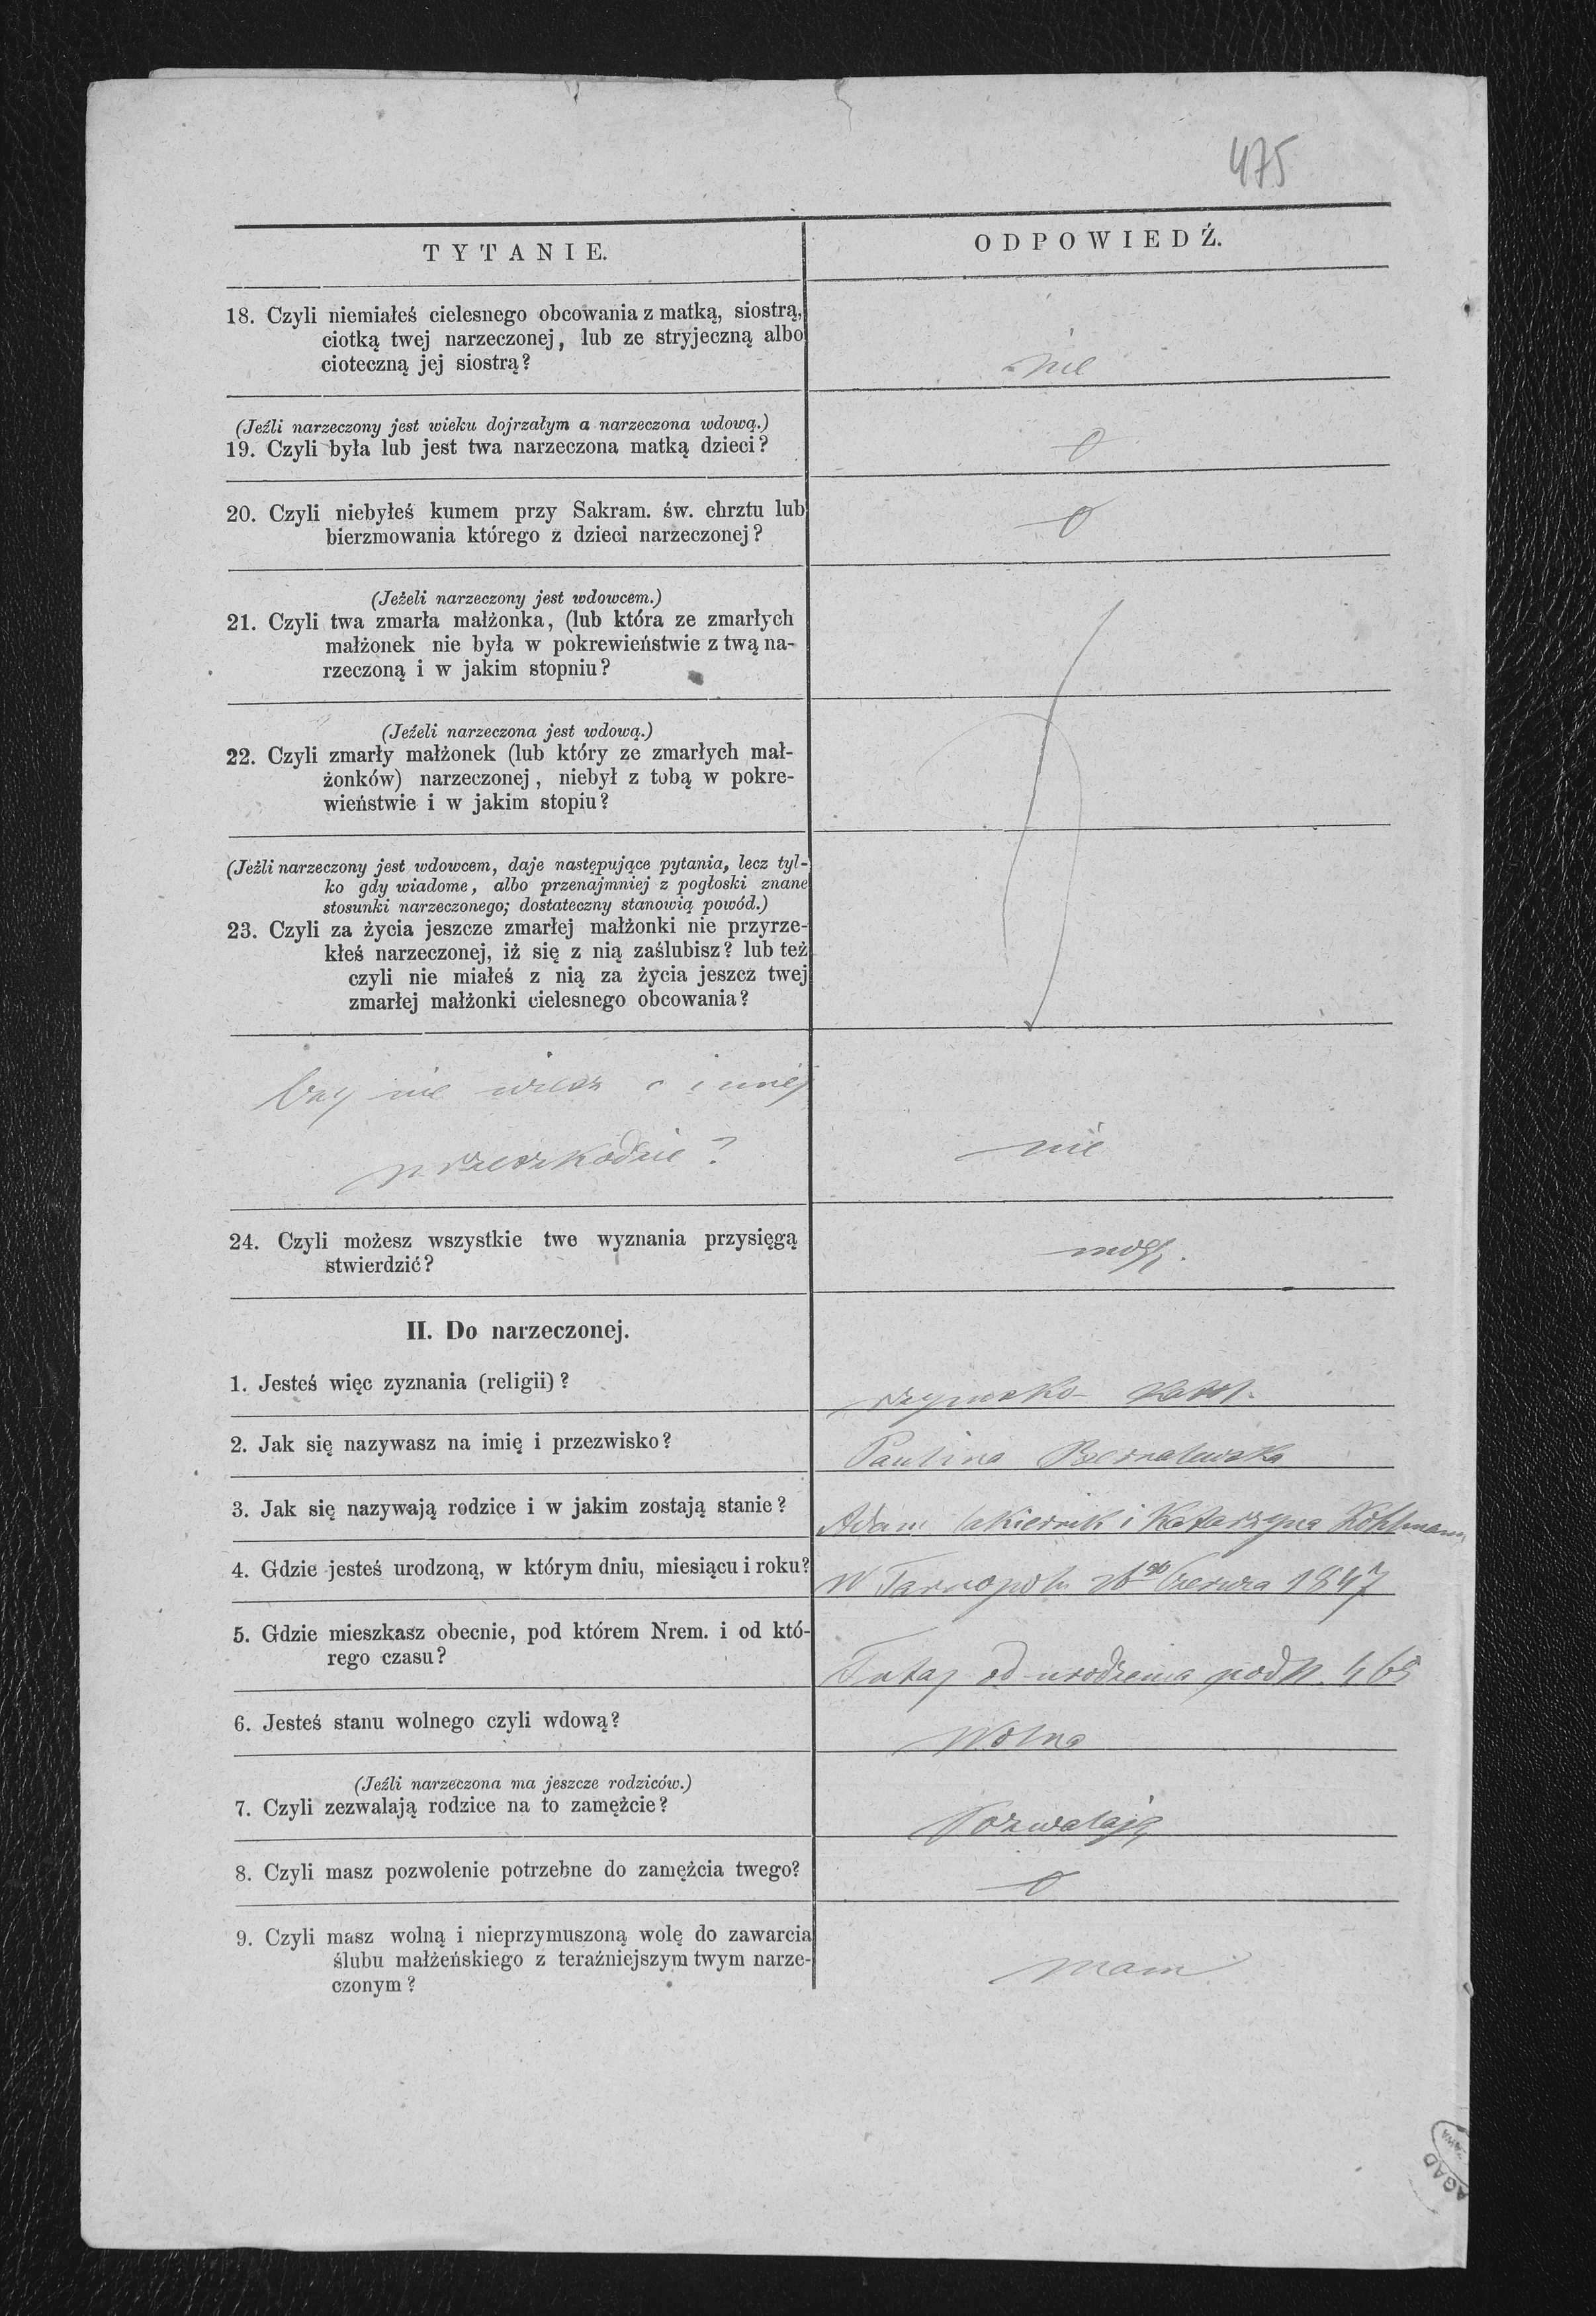 475
TYTANIE.
ODPOWIEDŹ.
18. Czyli niemiałeś cielesnego obcowania z matką, siostrą,
ciotką twej narzeczonej, lub ze stryjeczną albo
cioteczną jej siostrą?
nie
(Jeźli narzeczony jest wieku dojrzałym a narzeczona wdową.)
19. Czyli była lub jest twa narzeczona matką dzieci?
0
20. Czyli niebyłeś kumem przy Sakram. św. chrztu lub
bierzmowania którego z dzieci narzeczonej?
0
(Jeżeli narzeczony jest wdowcem.)
21. Czyli twa zmarła małżonka, (lub która ze zmarłych
małżonek nie była w pokrewieństwie z twą na-
rzeczoną i w jakim stopniu?
(Jeżeli narzeczona jest wdową.)
22. Czyli zmarły małżonek (lub który ze zmarłych mał-
żonków) narzeczonej, niebył z tobą w pokre-
wieństwie i w jakim stopiu?
(Jeżli narzeczony jest wdowcem, daje następujące pytania, lecz tyl-
ko gdy wiadome, albo przenajmniej z pogłoski znane
stosunki narzeczonego; dostateczny stanowią powód.)
23. Czyli za życia jeszcze zmarłej małżonki nie przyrze-
kłeś narzeczonej, iż się z nią zaślubisz? lub też
czyli nie miałeś z nią za życia jeszcz twej
zmarłej małżonki cielesnego obcowania?
Czy nie wiesz o innej
przeszkodzie?
nie
24. Czyli możesz wszystkie twe wyznania przysięgą
stwierdzić?
mogę.
II. Do narzeczonej.
1. Jesteś więc zyznania (religii)?
rzymsko-
2. Jak się nazywasz na imię i przezwisko?
Paulina
3. Jak się nazywają rodzice i w jakim zostają stanie?
Adam lakiernik i Katarzyna
4. Gdzie jesteś urodzoną, w którym dniu, miesiącu i roku?
W Tarnopolu 26go Czerwca 1847
5. Gdzie mieszkasz obecnie, pod którem Nrem. i od któ-
rego czasu?
Tutaj od urodzenia pod N. 463
6. Jesteś stanu wolnego czyli wdową?
Wolna
(Jeźli narzeczona ma jeszcze rodziców.)
7. Czyli zezwalają rodzice na to zamężcie?
Pozwalają
8. Czyli masz pozwolenie potrzebne do zamężcia twego?
0
9. Czyli masz wolną i nieprzymuszoną wolę do zawarcia
ślubu małżeńskiego z teraźniejszym twym narze-
czonym?
mam
AGAD